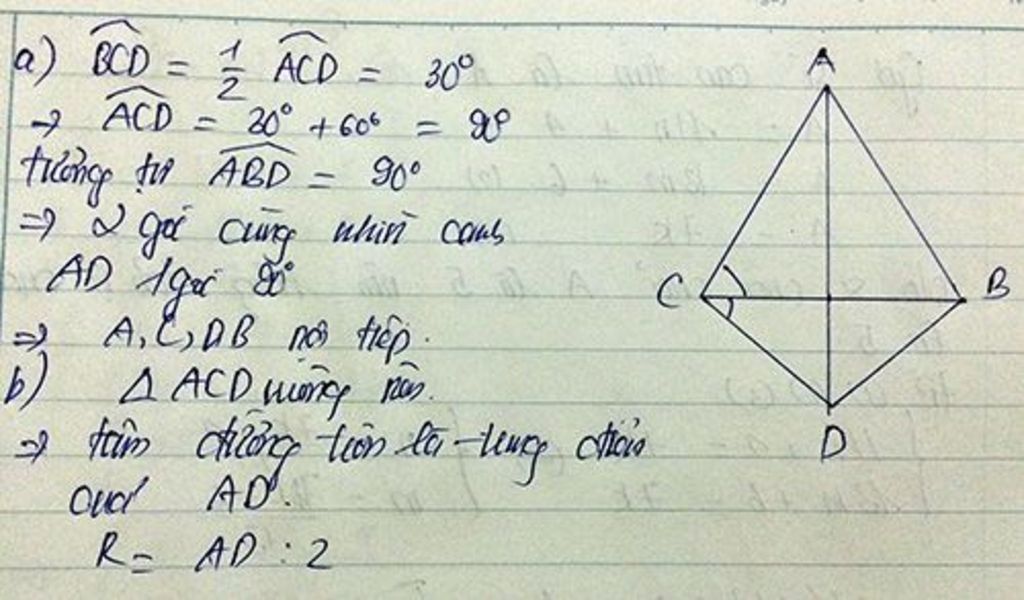 a) BCD = 1/2 ACD = 30°
→ ACD = 30° + 60° = 90°
tương tự ABD = 90°
⇒ 2 góc cùng nhìn cạnh
AD 1 góc 90°
⇒ A, C, D B nội tiếp.
b) Δ ACD vuông nên.
⇒ tâm đường tròn là trung điểm
của AD.
R = AD : 2
A
C
B
D